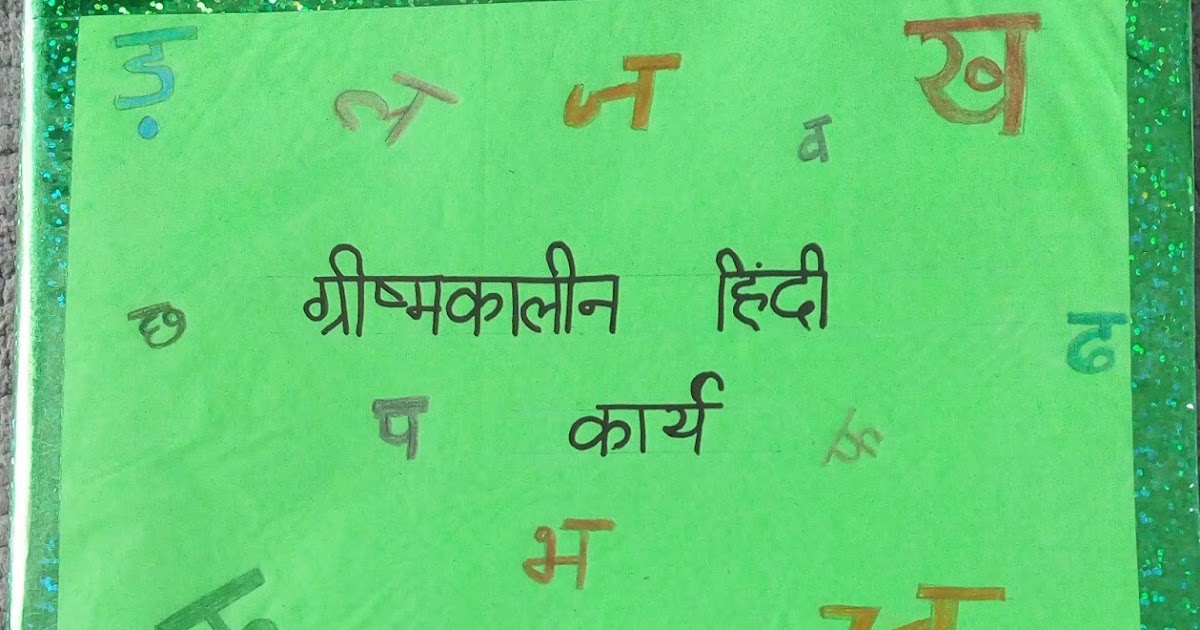 ड़ ल ज व ख
ग्रीष्मकालीन हिंदी
छ ढ
प कार्य क
भ